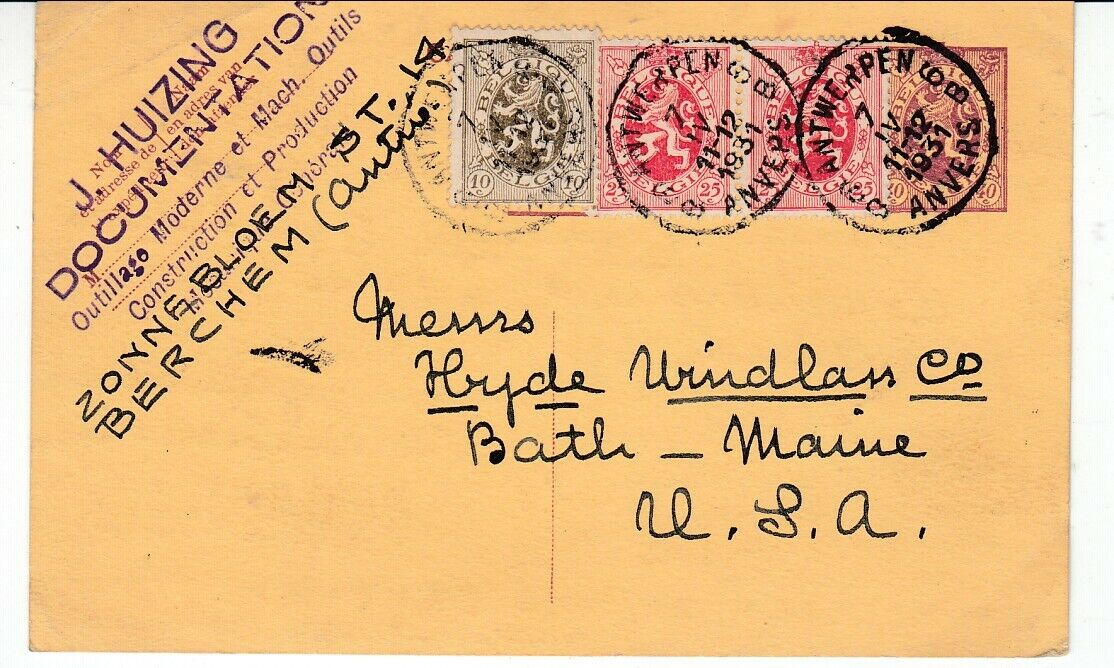 J. HUIZING
DOCUMENTATION
Outillago Moderne et Mach. Outils
Construction et Production
ZONNEBLOEM ST. 14
BERCHEM (Antw.
BELGIQUE
10 10
BELGIE
BELGIQUE
25 25
BELGIE
BELGIQUE
25
BELGIE
40 40
ANTWERPEN
ANTWERPEN 6 B
7 IV
11-12
1931
ANVERS
ANTWERPEN 6 B
7 IV
11-12
1931
ANVERS
Messrs
Hyde Windlass Co
Bath - Maine
U. S. A.